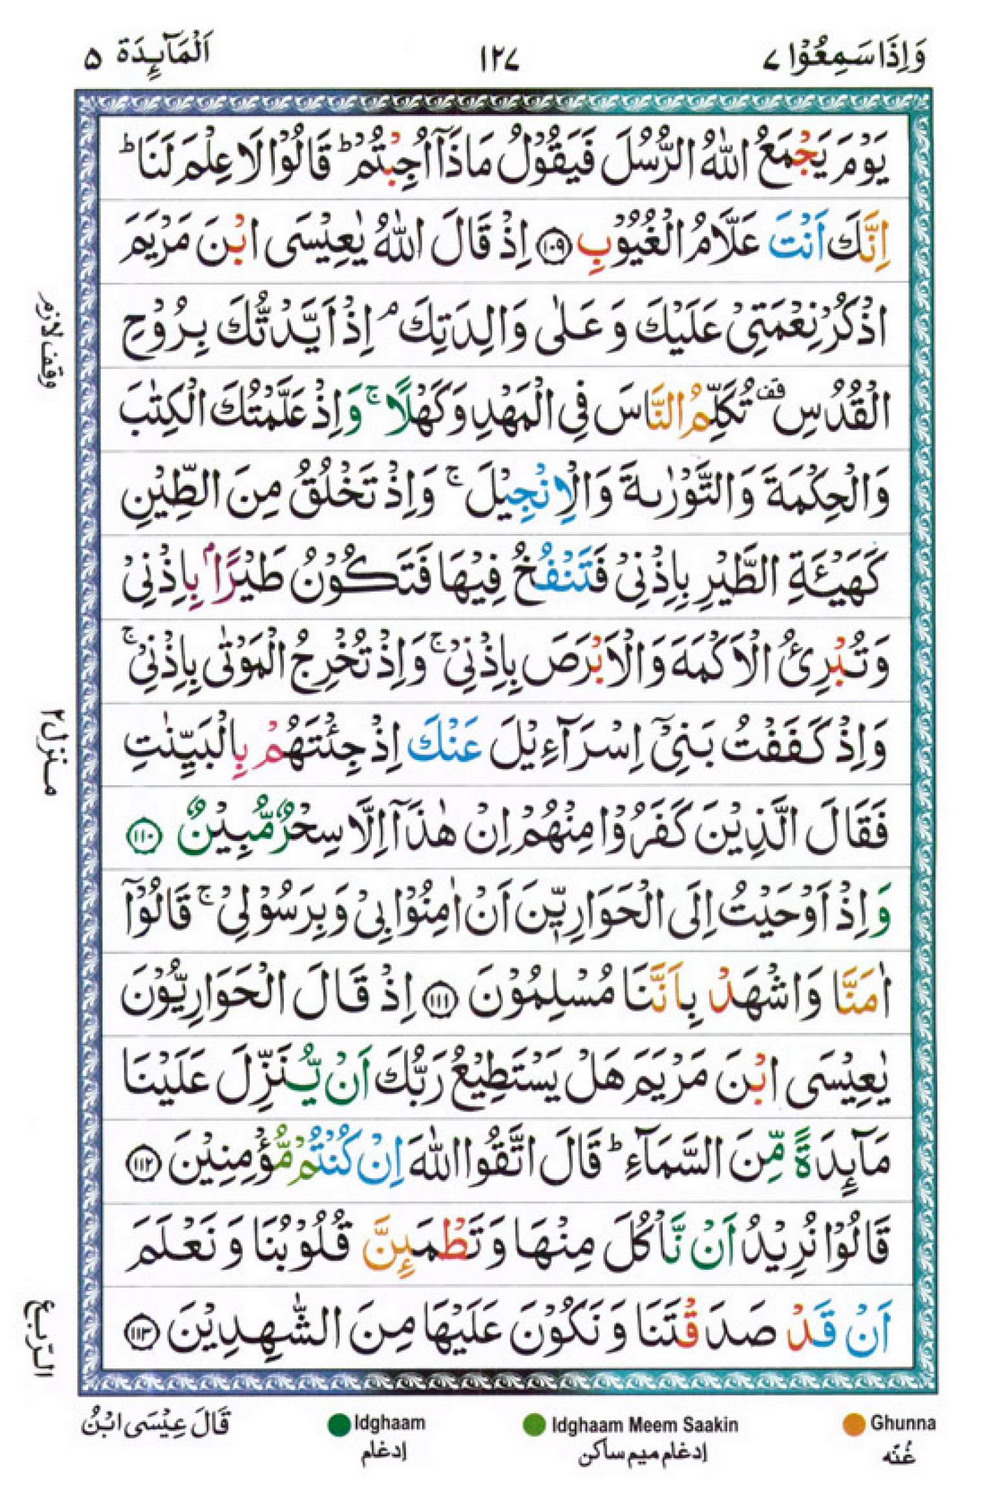 وَاِذَا سَمِعُوْا ٧
١٢٧
اَلْمَآىِٕدَة ٥
يَوْمَ يَجْمَعُ اللّٰهُ الرُّسُلَ فَيَقُوْلُ مَاذَآ اُجِبْتُمْ ؕ قَالُوْا لَا عِلْمَ لَنَا ؕ
اِنَّكَ اَنْتَ عَلَّامُ الْغُيُوْبِ ۝١٠٩ اِذْ قَالَ اللّٰهُ يٰعِيْسَى ابْنَ مَرْيَمَ
اذْكُرْ نِعْمَتِيْ عَلَيْكَ وَعَلٰى وَالِدَتِكَ ۘ اِذْ اَيَّدْتُّكَ بِرُوْحِ
الْقُدُسِ ۫ تُكَلِّمُ النَّاسَ فِي الْمَهْدِ وَكَهْلًا ۚ وَاِذْ عَلَّمْتُكَ الْكِتٰبَ
وَالْحِكْمَةَ وَالتَّوْرٰىةَ وَالْاِنْجِيْلَ ۚ وَاِذْ تَخْلُقُ مِنَ الطِّيْنِ
كَهَيْـَٔةِ الطَّيْرِ بِاِذْنِيْ فَتَنْفُخُ فِيْهَا فَتَكُوْنُ طَيْرًاۢ بِاِذْنِيْ
وَتُبْرِئُ الْاَكْمَهَ وَالْاَبْرَصَ بِاِذْنِيْ ۚ وَاِذْ تُخْرِجُ الْمَوْتٰى بِاِذْنِيْ ۚ
وَاِذْ كَفَفْتُ بَنِيْٓ اِسْرَآءِيْلَ عَنْكَ اِذْ جِئْتَهُمْ بِالْبَيِّنٰتِ
فَقَالَ الَّذِيْنَ كَفَرُوْا مِنْهُمْ اِنْ هٰذَآ اِلَّا سِحْرٌ مُّبِيْنٌ ۝١١٠
وَاِذْ اَوْحَيْتُ اِلَى الْحَوَارِيّٖنَ اَنْ اٰمِنُوْا بِيْ وَبِرَسُوْلِيْ ۚ قَالُوْٓا
اٰمَنَّا وَاشْهَدْ بِاَنَّنَا مُسْلِمُوْنَ ۝١١١ اِذْ قَالَ الْحَوَارِيُّوْنَ
يٰعِيْسَى ابْنَ مَرْيَمَ هَلْ يَسْتَطِيْعُ رَبُّكَ اَنْ يُّنَزِّلَ عَلَيْنَا
مَآىِٕدَةً مِّنَ السَّمَآءِ ؕ قَالَ اتَّقُوا اللّٰهَ اِنْ كُنْتُمْ مُّؤْمِنِيْنَ ۝١١٢
قَالُوْا نُرِيْدُ اَنْ نَّاْكُلَ مِنْهَا وَتَطْمَىِٕنَّ قُلُوْبُنَا وَنَعْلَمَ
اَنْ قَدْ صَدَقْتَنَا وَنَكُوْنَ عَلَيْهَا مِنَ الشّٰهِدِيْنَ ۝١١٣
وقف لازم
منزل٢
الربع
قَالَ عِيْسَى ابْنُ
Idghaam
إدغام
Idghaam Meem Saakin
إدغام ميم ساكن
Ghunna
غُنّه